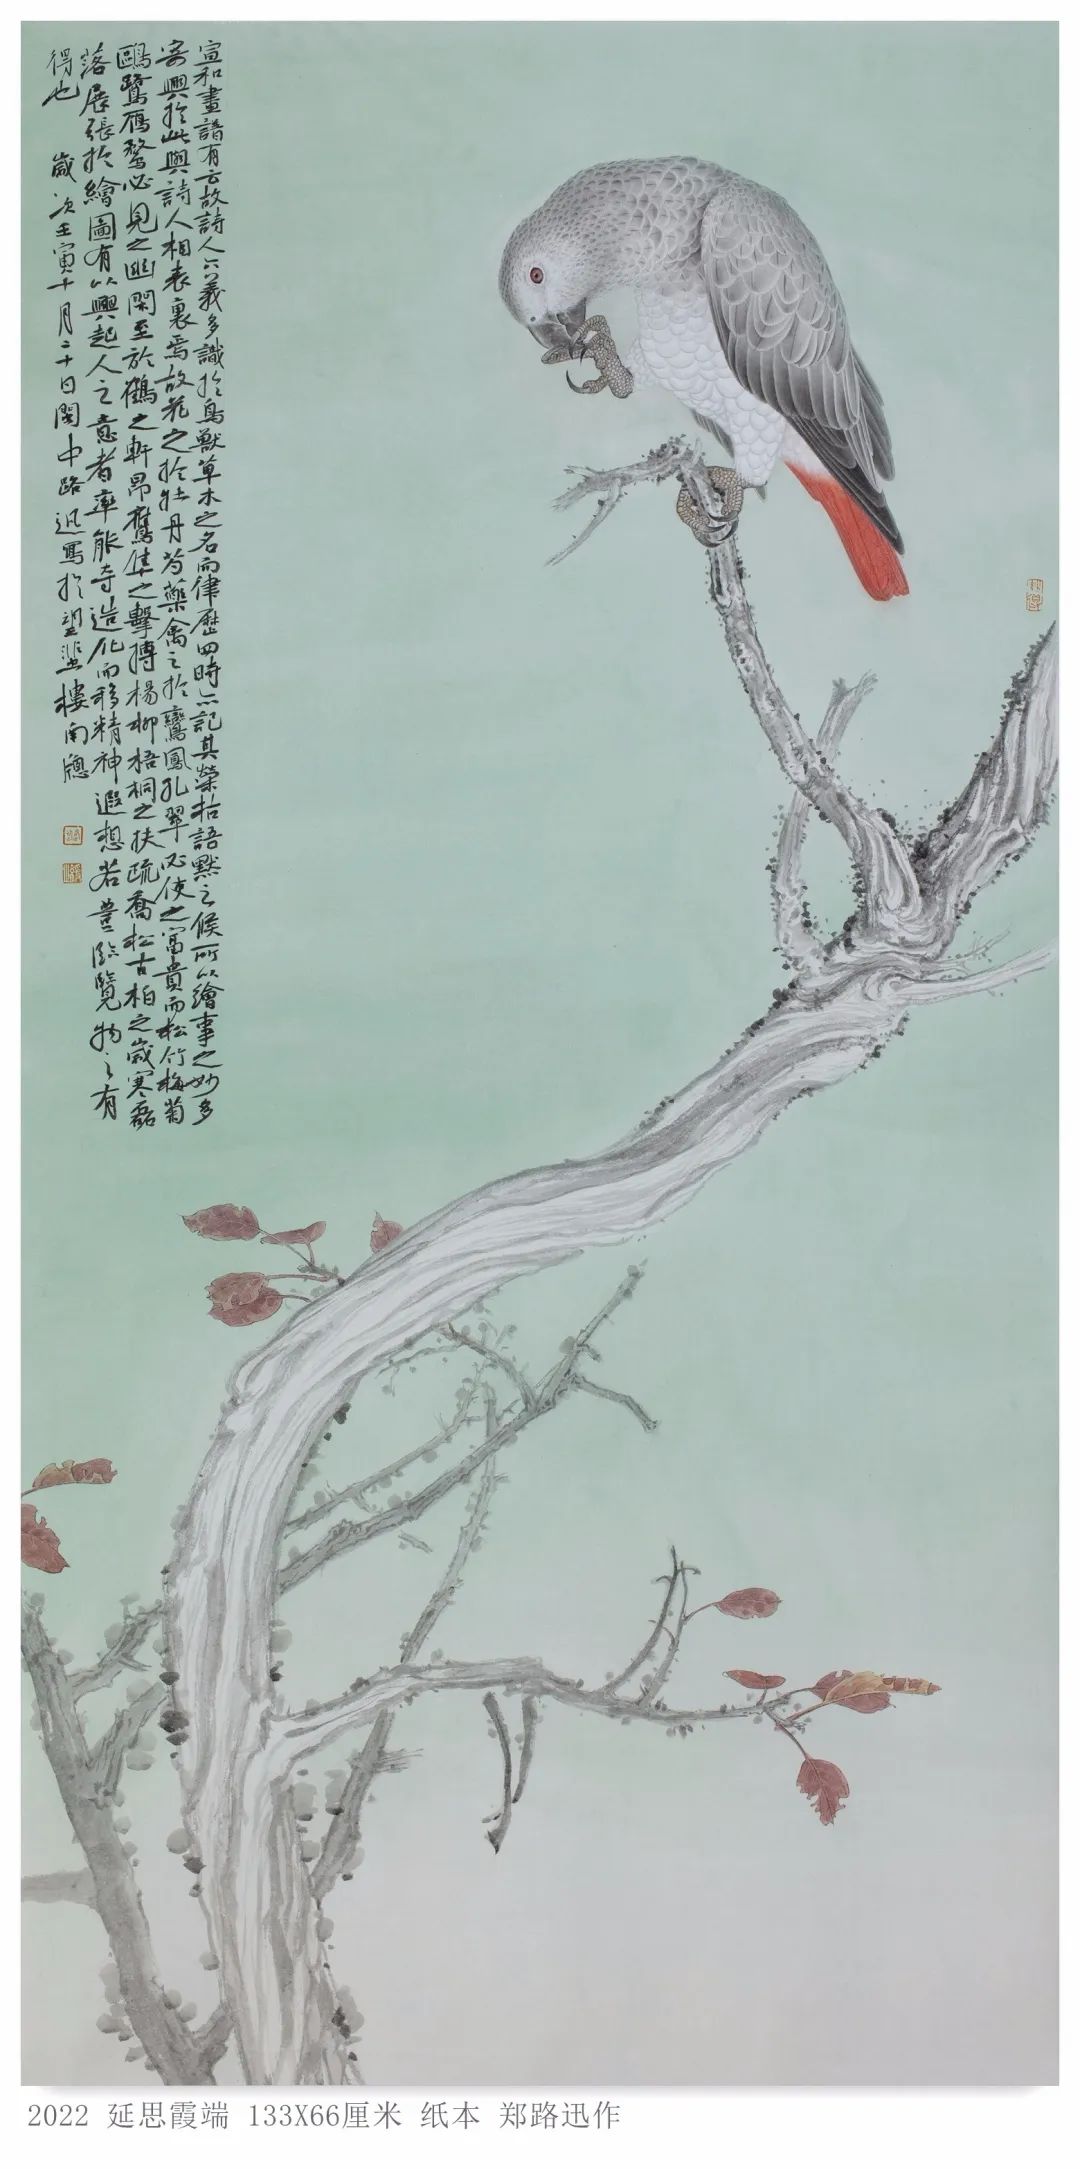 宣和畫譜有云故詩人六義多識於鳥獸草木之名而律歷四時亦記其榮枯語默之候所以繪事之妙多
寄興於此與詩人相表裏焉故花之於牡丹芍藥禽之於鸞鳳孔翠必使之富貴而松竹梅菊
鷗鷺雁鶩必見之幽閑至於鶴之軒昂鷹隼之擊搏楊柳梧桐之扶疏喬松古柏之歲寒磊
落展張於繪圖有以興起人之意者率能奪造化而移精神遐想若登臨覽物之有
得也 歲次壬寅十月二十日閩中路迅寫於望蜚樓南窗
2022 延思霞端 133X66厘米 纸本 郑路迅作